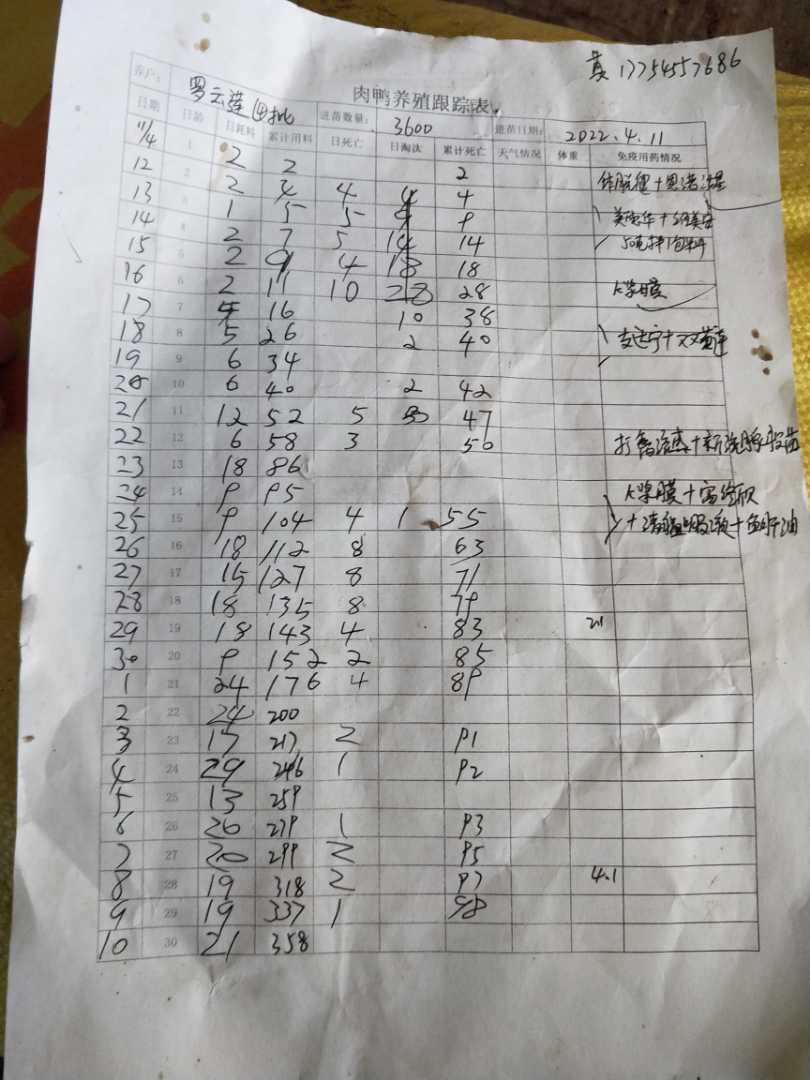 黄 17754557686
肉鸭养殖跟踪表
养户: 罗云莲 进苗数量: 3600 进苗日期: 2022.4.11
日期 日龄 日耗料 累计用料 日死亡 日淘汰 累计死亡 天气情况 体重 免疫用药情况
11/4 1 2 2 2
12 2 2 4 4 4
13 3 1 5 5 9
14 4 2 7 5 14 14
15 5 2 9 4 18 18
16 6 2 11 10 28 28
17 7 16 10 38
18 8 5 26 2 40
19 9 6 34
20 10 6 40 2 42
21 11 12 52 5 47
22 12 6 58 3 50
23 13 18 86
24 14 9 95
25 15 9 104 4 1 55
26 16 18 112 8 63
27 17 15 127 8 71
28 18 18 135 8 79
29 19 18 143 4 83
30 20 9 152 2 85
1 21 24 176 4 89
2 22 24 200
3 23 17 217 2 91
4 24 29 246 1 92
5 25 13 259
6 26 20 279 1 93
7 27 20 299 2 95
8 28 19 318 2 97 4.1
9 29 19 337 1 98
10 30 21 358